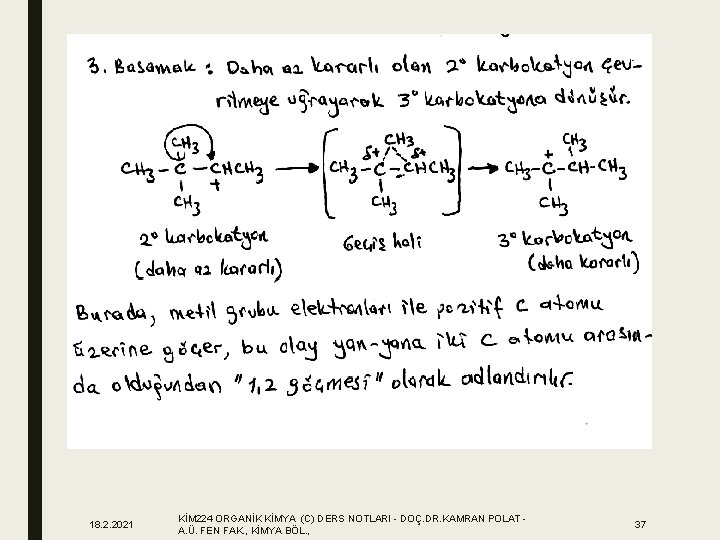 3. Basamak : Daha az kararlı olan 2° karbokatyon çev-
rilmeye uğrayarak 3° karbokatyona dönüşür.
CH3 CH3 CH3
δ+ δ+ +
CH3 – C – CHCH3 CH3 – C – CHCH3 CH3 – C – CH – CH3
+
CH3 CH3 CH3
2° karbokatyon Geçiş hali 3° karbokatyon
(daha az kararlı) (daha kararlı)
Burada, metil grubu elektronları ile pozitif C atomu
üzerine göçer, bu olay yan-yana iki C atomu arasın-
da olduğundan "1,2 göçmesi" olarak adlandırılır.
18.2.2021
KİM224 ORGANİK KİMYA (C) DERS NOTLARI - DOÇ.DR.KAMRAN POLAT -
A.Ü. FEN FAK., KİMYA BÖL.,
37